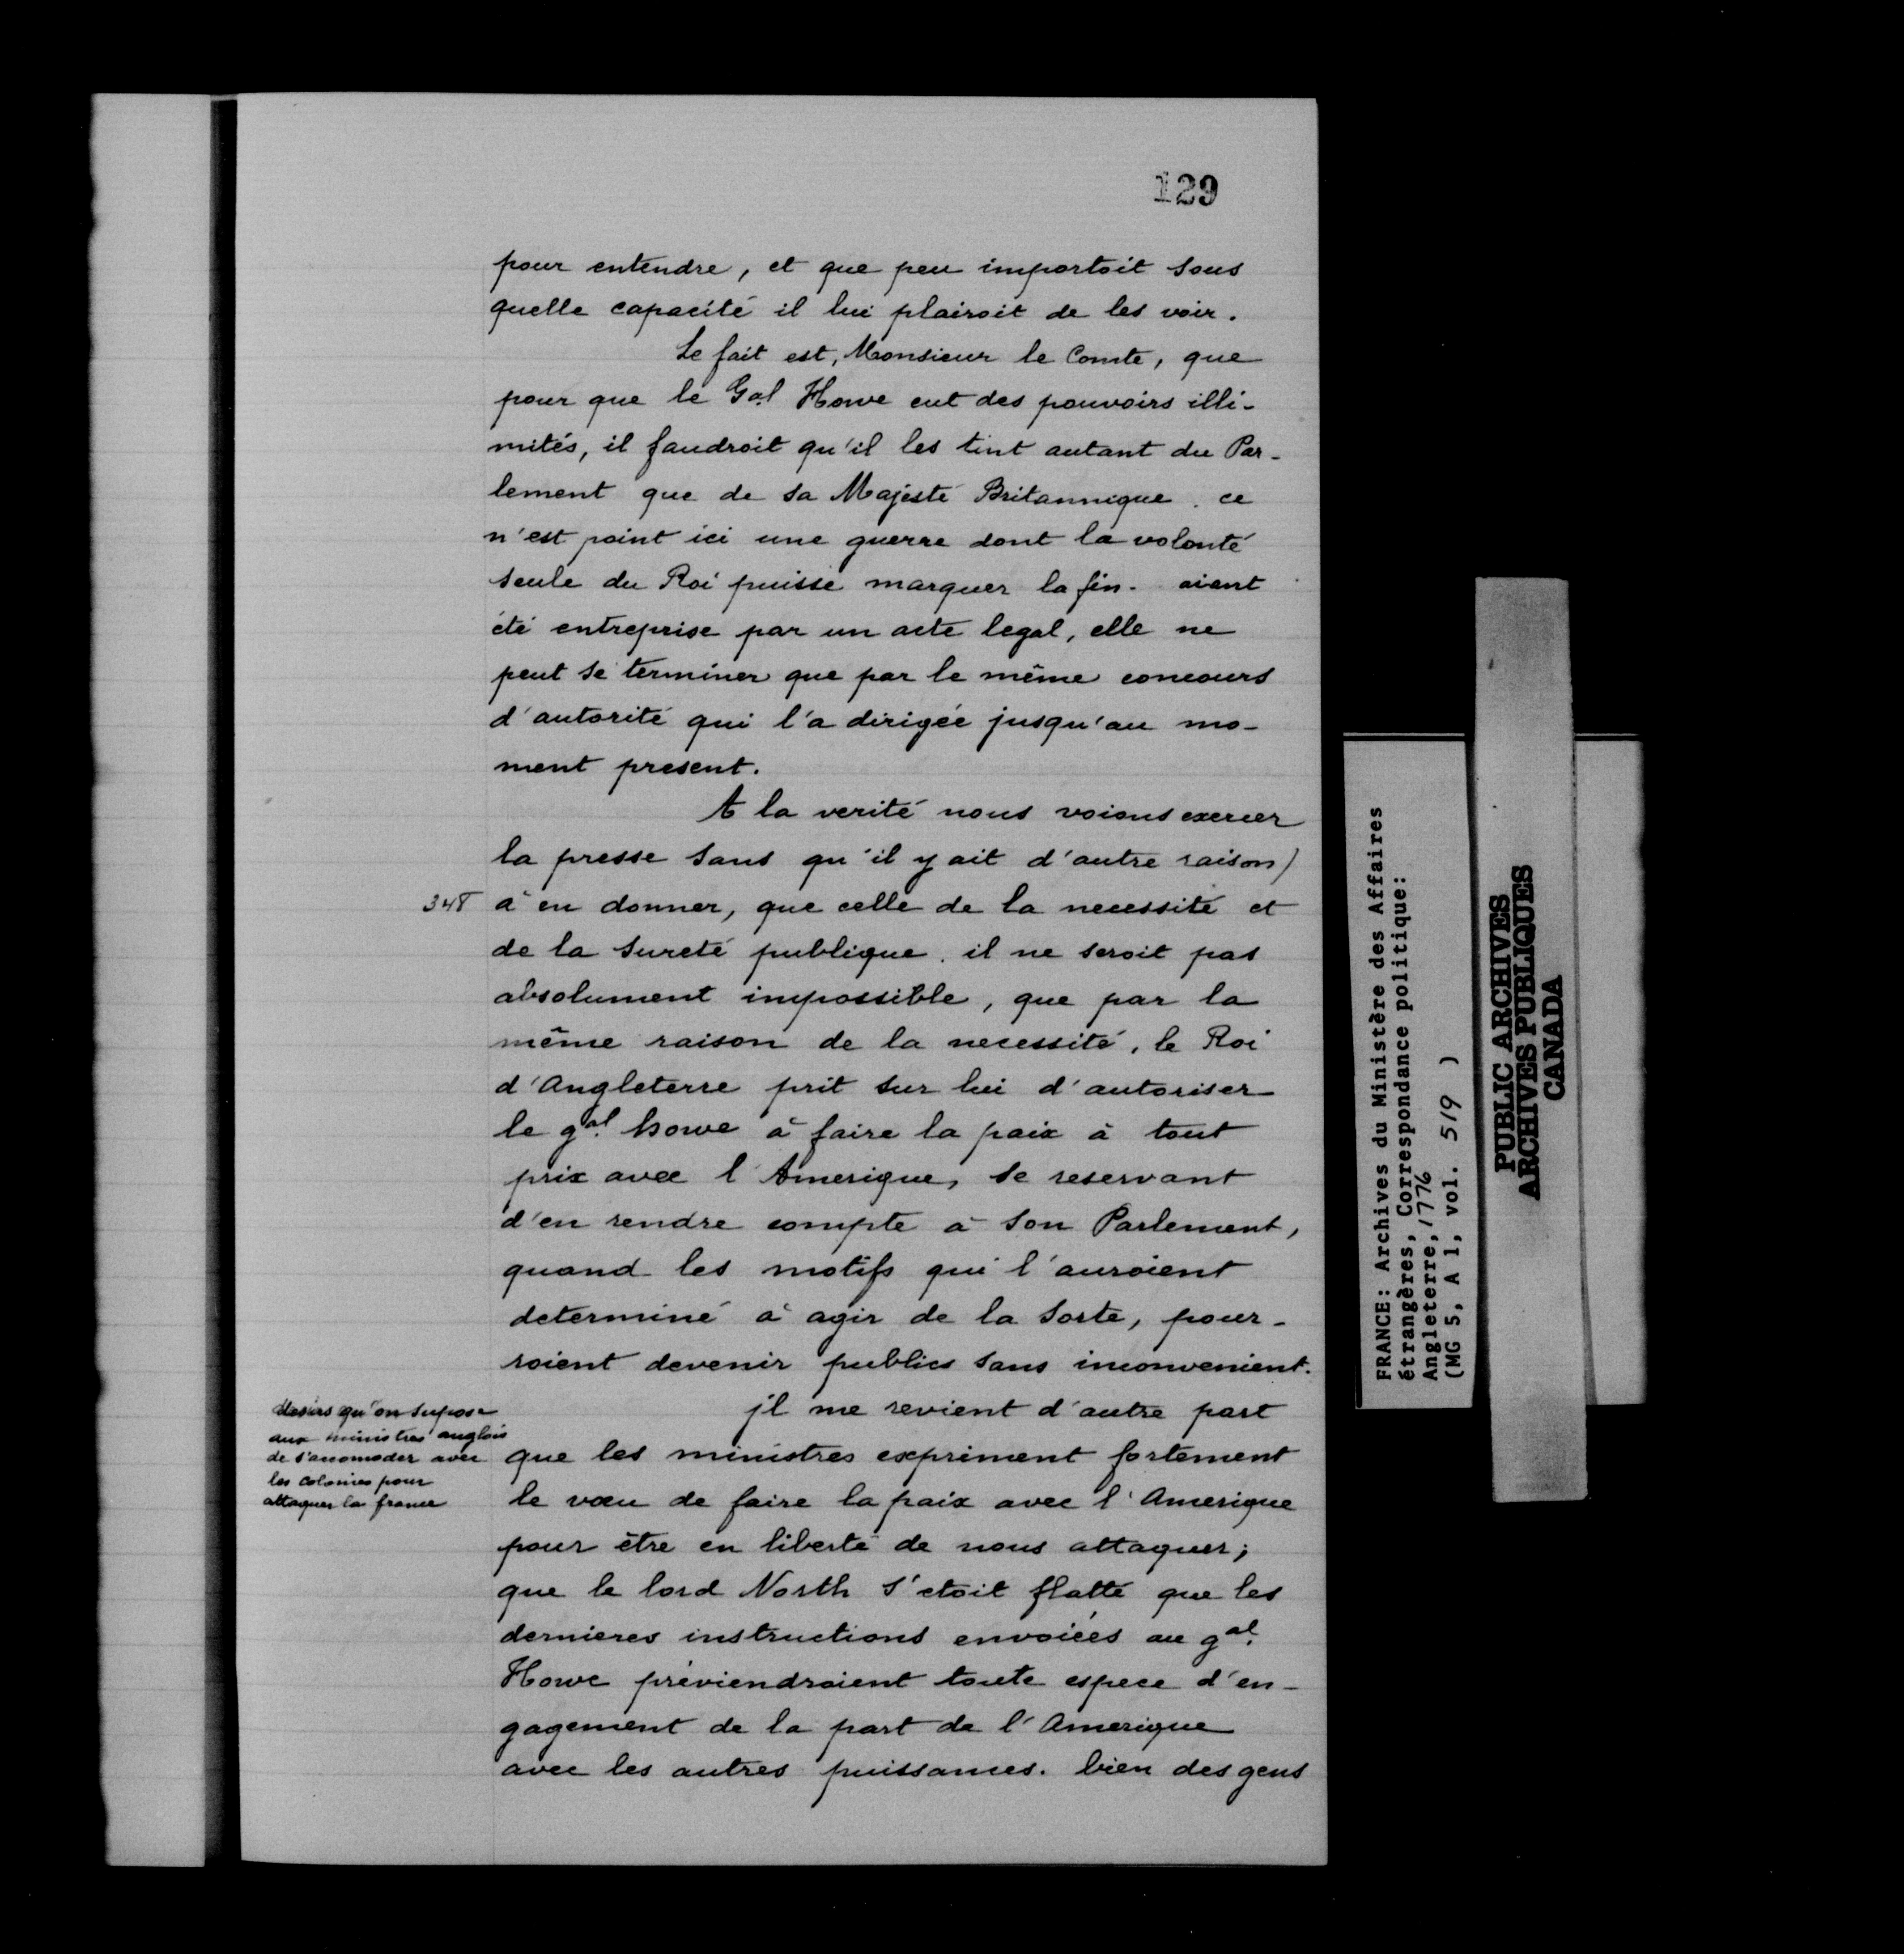 129
pour entendre, et que peu importoit sous
quelle capacité il lui plairoit de les voir.
Le fait est, Monsieur le Comte, que
pour que le Gal Howe eut des pouvoirs illi-
mités, il faudroit qu'il les tint autant du Par-
lement que de sa Majesté Britannique. ce
n'est point ici une guerre dont la volonté
seule du Roi puisse marquer la fin. aiant
été entreprise par un acte legal, elle ne
peut se terminer que par le même concours
d'autorité qui l'a dirigée jusqu'au mo-
ment present.
A la verité nous voions exercer
la presse sans qu'il y ait d'autre raison
348 à en donner, que celle de la necessité et
de la sureté publique. il ne seroit pas
absolument impossible, que par la
même raison de la necessité, le Roi
d'Angleterre prit sur lui d'autoriser
le gal. howe à faire la paix à tout
prix avec l'Amerique, se reservant
d'en rendre compte à son Parlement,
quand les motifs qui l'auroient
determiné à agir de la sorte, pour-
roient devenir publics sans inconvenient.
desirs qu'on supose
aux ministres anglois
de s'accomoder avec
les colonies pour
attaquer la france
jl me revient d'autre part
que les ministres expriment fortement
le vœu de faire la paix avec l'Amerique
pour être en liberté de nous attaquer;
que le lord North s'etoit flatté que les
dernieres instructions envoiées au gal.
Howe préviendroient toute espece d'en-
gagement de la part de l'Amerique
avec les autres puissances. bien des gens
FRANCE: Archives du Ministère des Affaires
étrangères, Correspondance politique:
Angleterre, 1776
(MG 5, A 1, vol. 519 )
PUBLIC ARCHIVES
ARCHIVES PUBLIQUES
CANADA